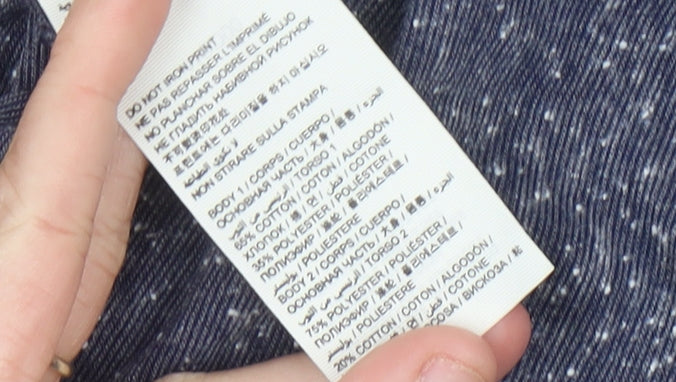 DO NOT IRON PRINT
NE PAS REPASSER L'IMPRIMÉ
NO PLANCHAR SOBRE EL DIBUJO
НЕ ГЛАДИТЬ НАБИВНОЙ РИСУНОК
不可熨烫印花处
프린트에는 다리미질을 하지 마십시오
NON STIRARE SULLA STAMPA
BODY 1 / CORPS / CUERPO /
ОСНОВНАЯ ЧАСТЬ / 大身 / 몸통 / الجزء
الرئيسي من النص / TORSO 1
65% COTTON / COTON / ALGODÓN /
ХЛОПОК / 棉 / 면 / قطن / COTONE
35% POLYESTER / POLIÉSTER /
ПОЛИЭФИР / 涤纶 / 폴리에스테르 /
بوليستر / POLIESTERE
BODY 2 / CORPS / CUERPO /
ОСНОВНАЯ ЧАСТЬ / 大身 / 몸통 / الجزء
الرئيسي من النص / TORSO 2
75% POLYESTER / POLIÉSTER /
ПОЛИЭФИР / 涤纶 / 폴리에스테르 /
بوليستر / POLIESTERE
20% COTTON / COTON / ALGODÓN /
/ 면 / قطن / COTONE
OSA / ВИСКОЗА / 粘